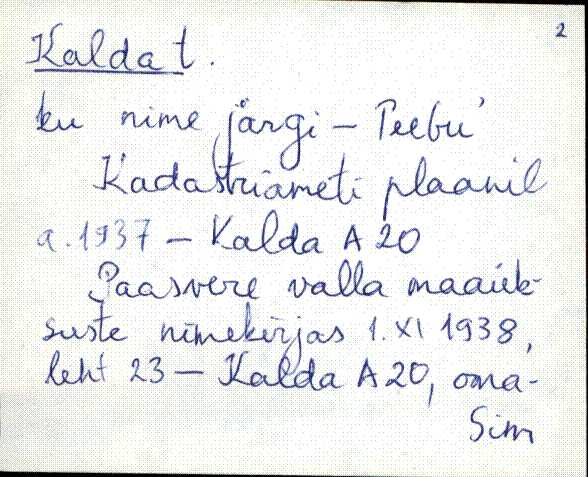 2
Kalda t.
ku nime järgi – Peebu'
Kadastriameti plaanil
a. 1937 – Kalda A 20
Paasvere valla maaük-
suste nimekirjas 1. XI 1938,
leht 23 – Kalda A 20, oma-
Sim